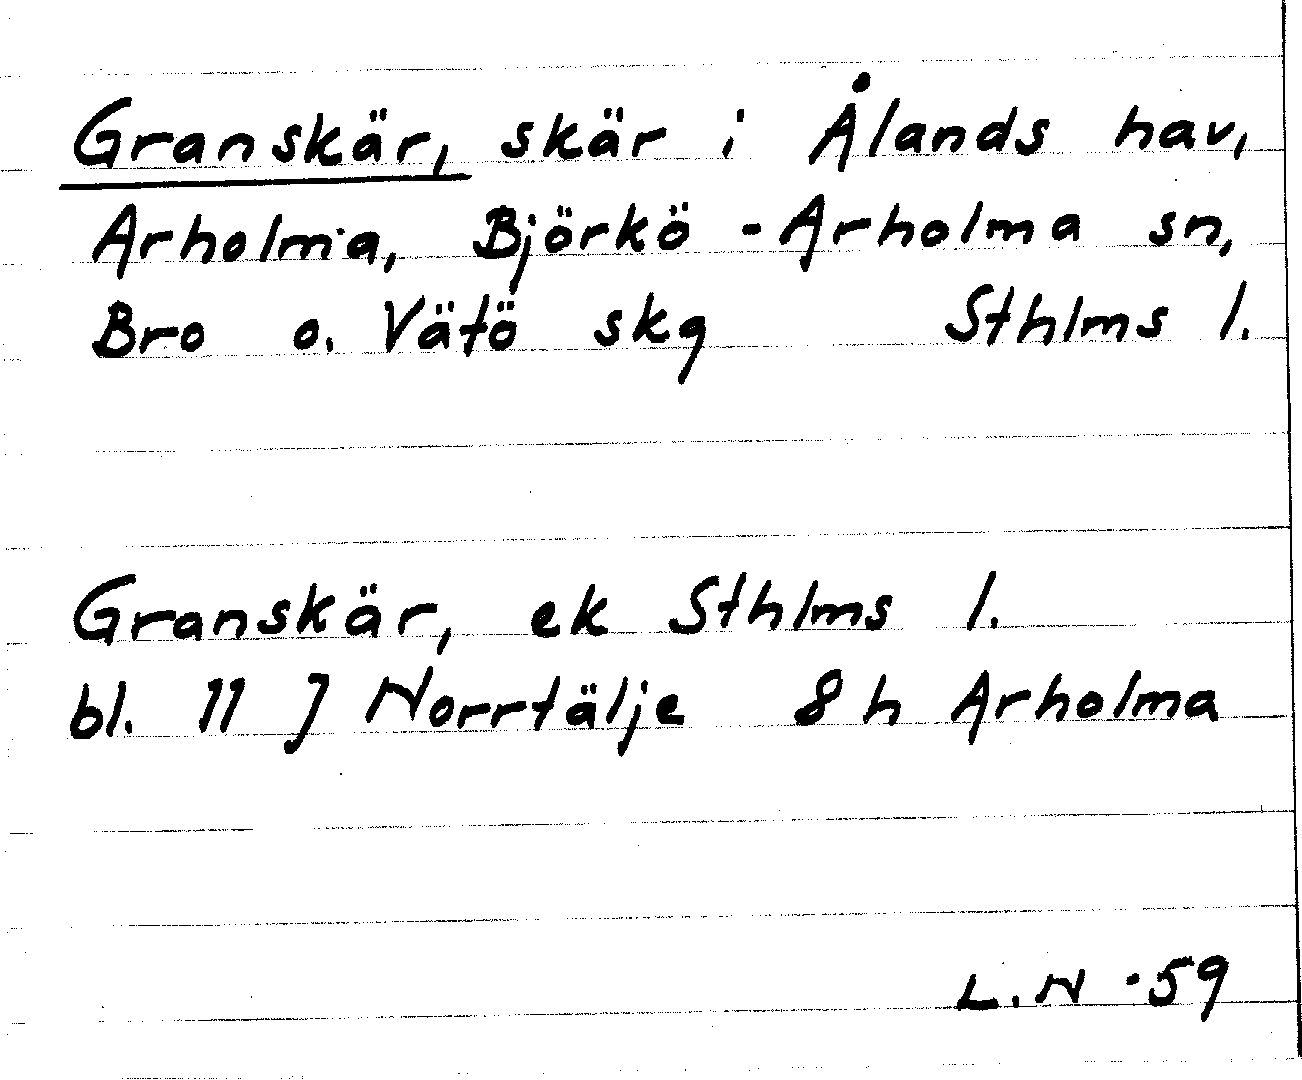 Granskär, skär i Ålands hav,
Arholma, Björkö-Arholma sn,
Bro o. Vätö skg Sthlms l.
Granskär, ek Sthlms l.
bl. 11 J Norrtälje 8 h Arholma
L.N -59